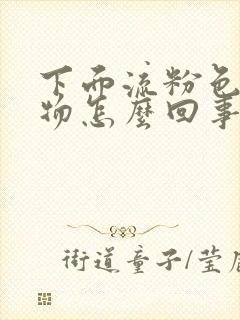 下面流粉色
物怎麼回事
街道童子/莹